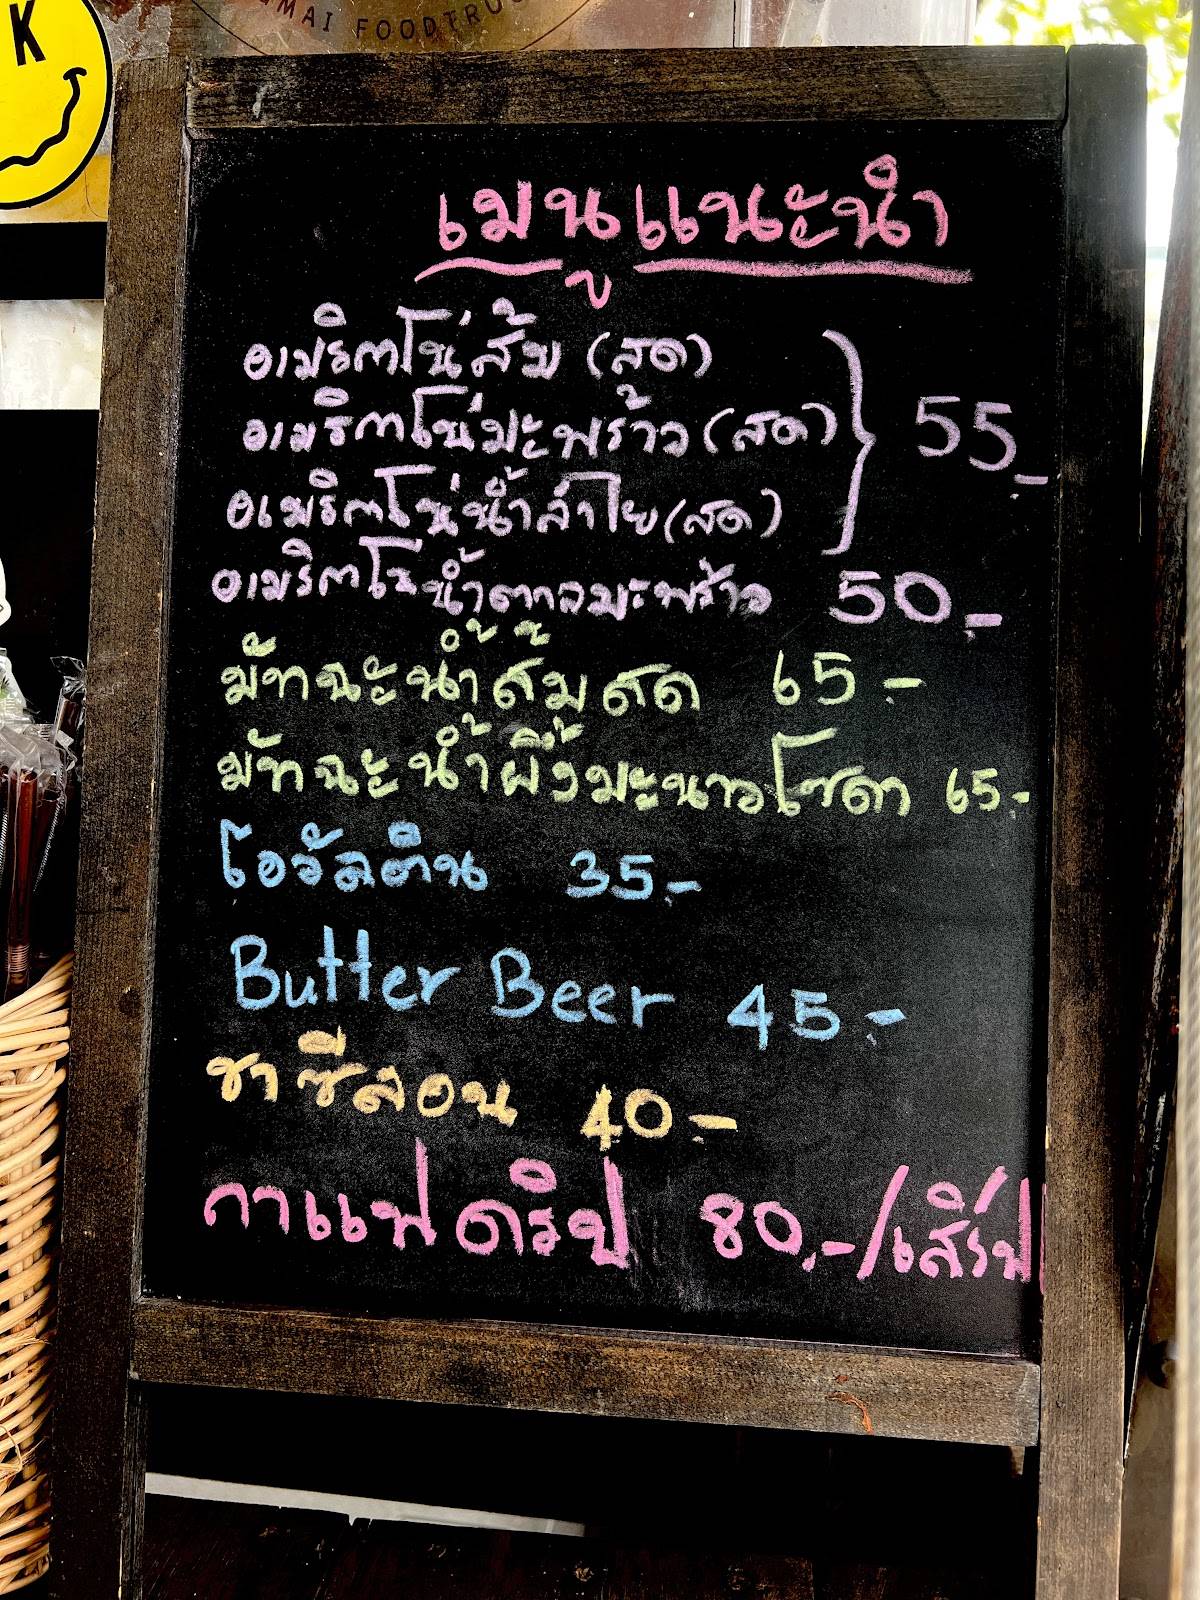 K
MAI FOODTRU
เมนูแนะนำ
อเมริกาโน่ส้ม (สด)
อเมริกาโน่มะพร้าว (สด)
55.-
อเมริกาโน่น้ำลำไย (สด)
อเมริกาโน่น้ำตาลมะพร้าว 50.-
มัทฉะน้ำส้มสด 65.-
มัทฉะน้ำผึ้งมะนาวโซดา 65.-
โอวัลติน 35.-
Butter Beer 45.-
ชาซีลอน 40.-
กาแฟดริป 80.-/เสิร์ฟ